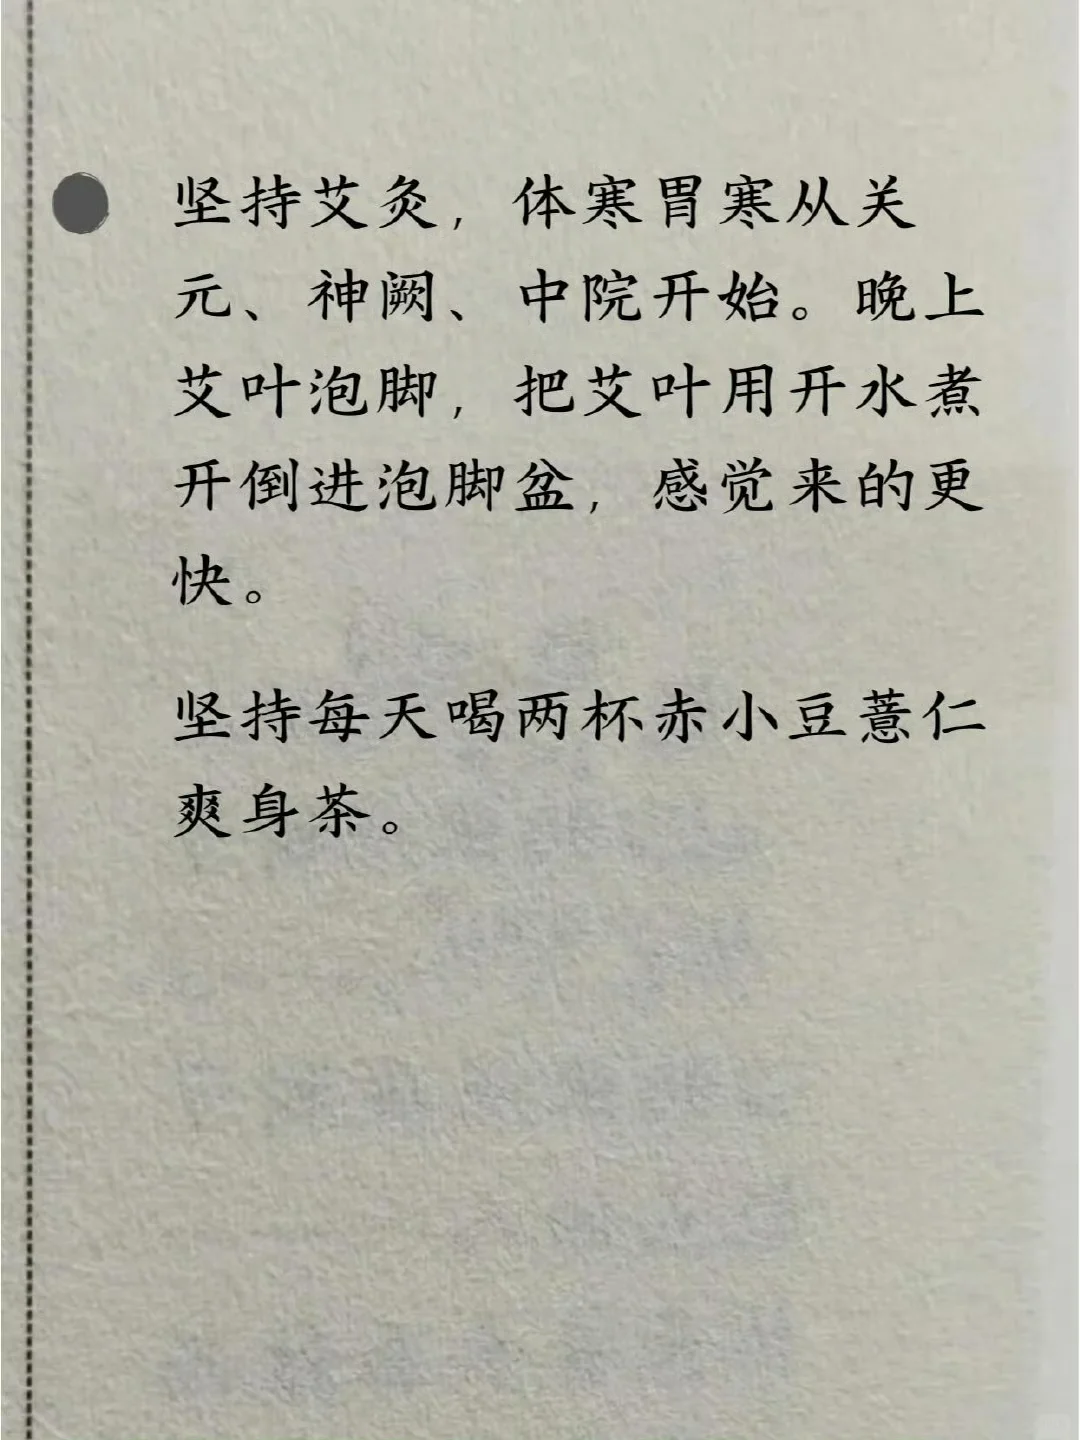 坚持艾灸，体寒胃寒从关
元、神阙、中院开始。晚上
艾叶泡脚，把艾叶用开水煮
开倒进泡脚盆，感觉来的更
快。
坚持每天喝两杯赤小豆薏仁
爽身茶。